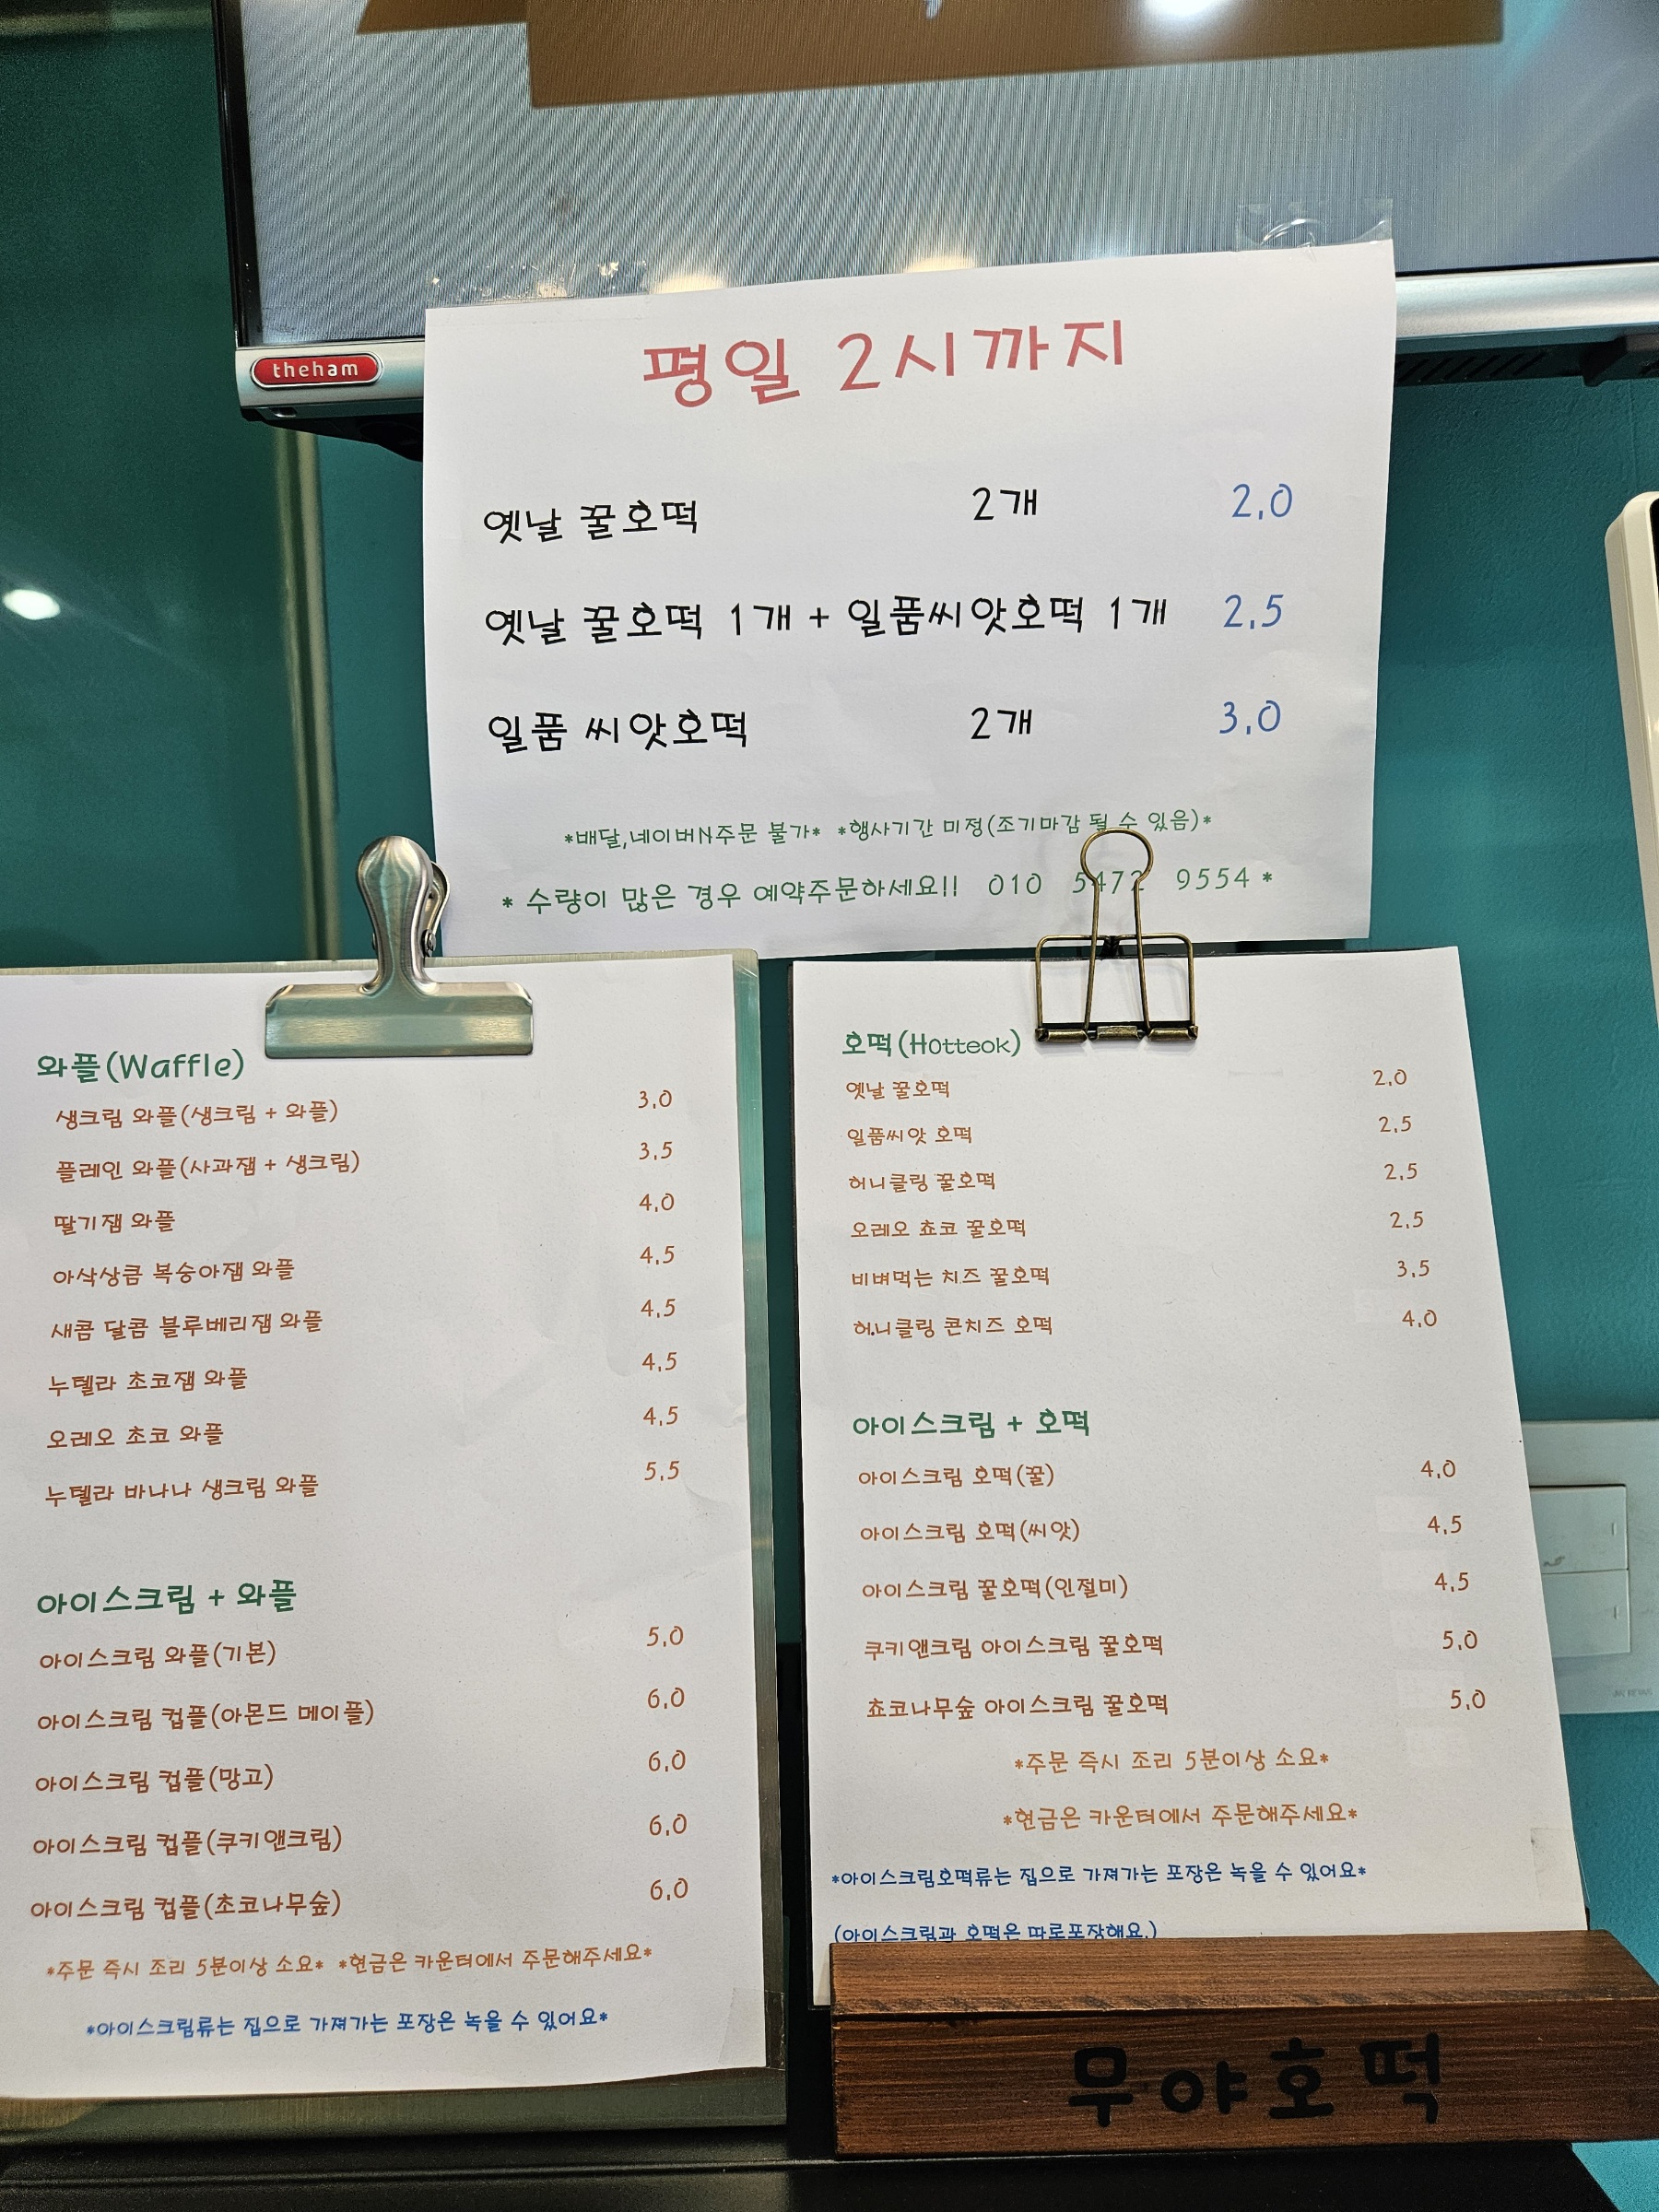 theham
평일 2시까지
옛날 꿀호떡 2개 2.0
옛날 꿀호떡 1개 + 일품씨앗호떡 1개 2.5
일품 씨앗호떡 2개 3.0
*배달,네이버N주문 불가* *행사기간 미정(조기마감 될 수 있음)*
* 수량이 많은 경우 예약주문하세요!! 010 5472 9554 *
와플(Waffle)
생크림 와플(생크림 + 와플) 3.0
플레인 와플(사과잼 + 생크림) 3.5
딸기잼 와플 4.0
아삭상큼 복숭아잼 와플 4.5
새콤 달콤 블루베리잼 와플 4.5
누텔라 초코잼 와플 4.5
오레오 초코 와플 4.5
누텔라 바나나 생크림 와플 5.5
아이스크림 + 와플
아이스크림 와플(기본) 5.0
아이스크림 컵플(아몬드 메이플) 6.0
아이스크림 컵플(망고) 6.0
아이스크림 컵플(쿠키앤크림) 6.0
아이스크림 컵플(초코나무숲) 6.0
*주문 즉시 조리 5분이상 소요* *현금은 카운터에서 주문해주세요*
*아이스크림류는 집으로 가져가는 포장은 녹을 수 있어요*
호떡(Hotteok)
옛날 꿀호떡 2.0
일품씨앗 호떡 2.5
허니클링 꿀호떡 2.5
오레오 쵸코 꿀호떡 2.5
비벼먹는 치즈 꿀호떡 3.5
허니클링 콘치즈 호떡 4.0
아이스크림 + 호떡
아이스크림 호떡(꿀) 4.0
아이스크림 호떡(씨앗) 4.5
아이스크림 꿀호떡(인절미) 4.5
쿠키앤크림 아이스크림 꿀호떡 5.0
쵸코나무숲 아이스크림 꿀호떡 5.0
*주문 즉시 조리 5분이상 소요*
*현금은 카운터에서 주문해주세요*
*아이스크림호떡류는 집으로 가져가는 포장은 녹을 수 있어요*
(아이스크림과 호떡은 따로포장해요.)
무야호떡